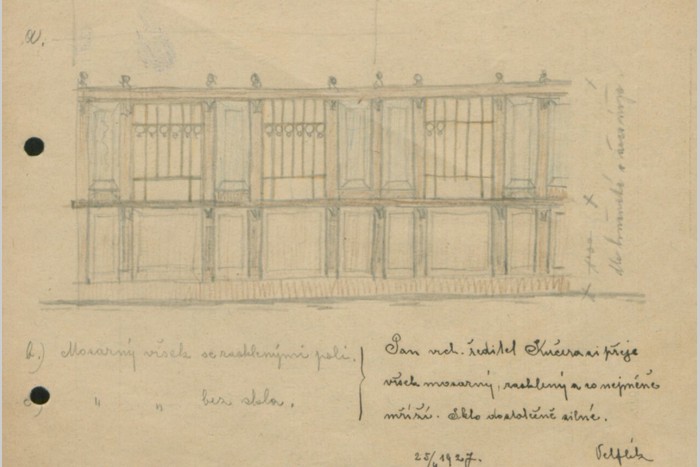 a.
b.) Mosazný vršek se zasklenými poli.
c.) " " bez skla.
Pan vrch. ředitel Kučera si přeje
vršek mosazný, zasklený a co nejméně
mříží. Sklo dostatečně silné.
25/4 1927.